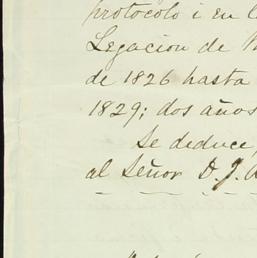 protocolo i en l
Legacion de
de 1826 hasta
1829; dos años
Se deduce,
al Señor D. J.